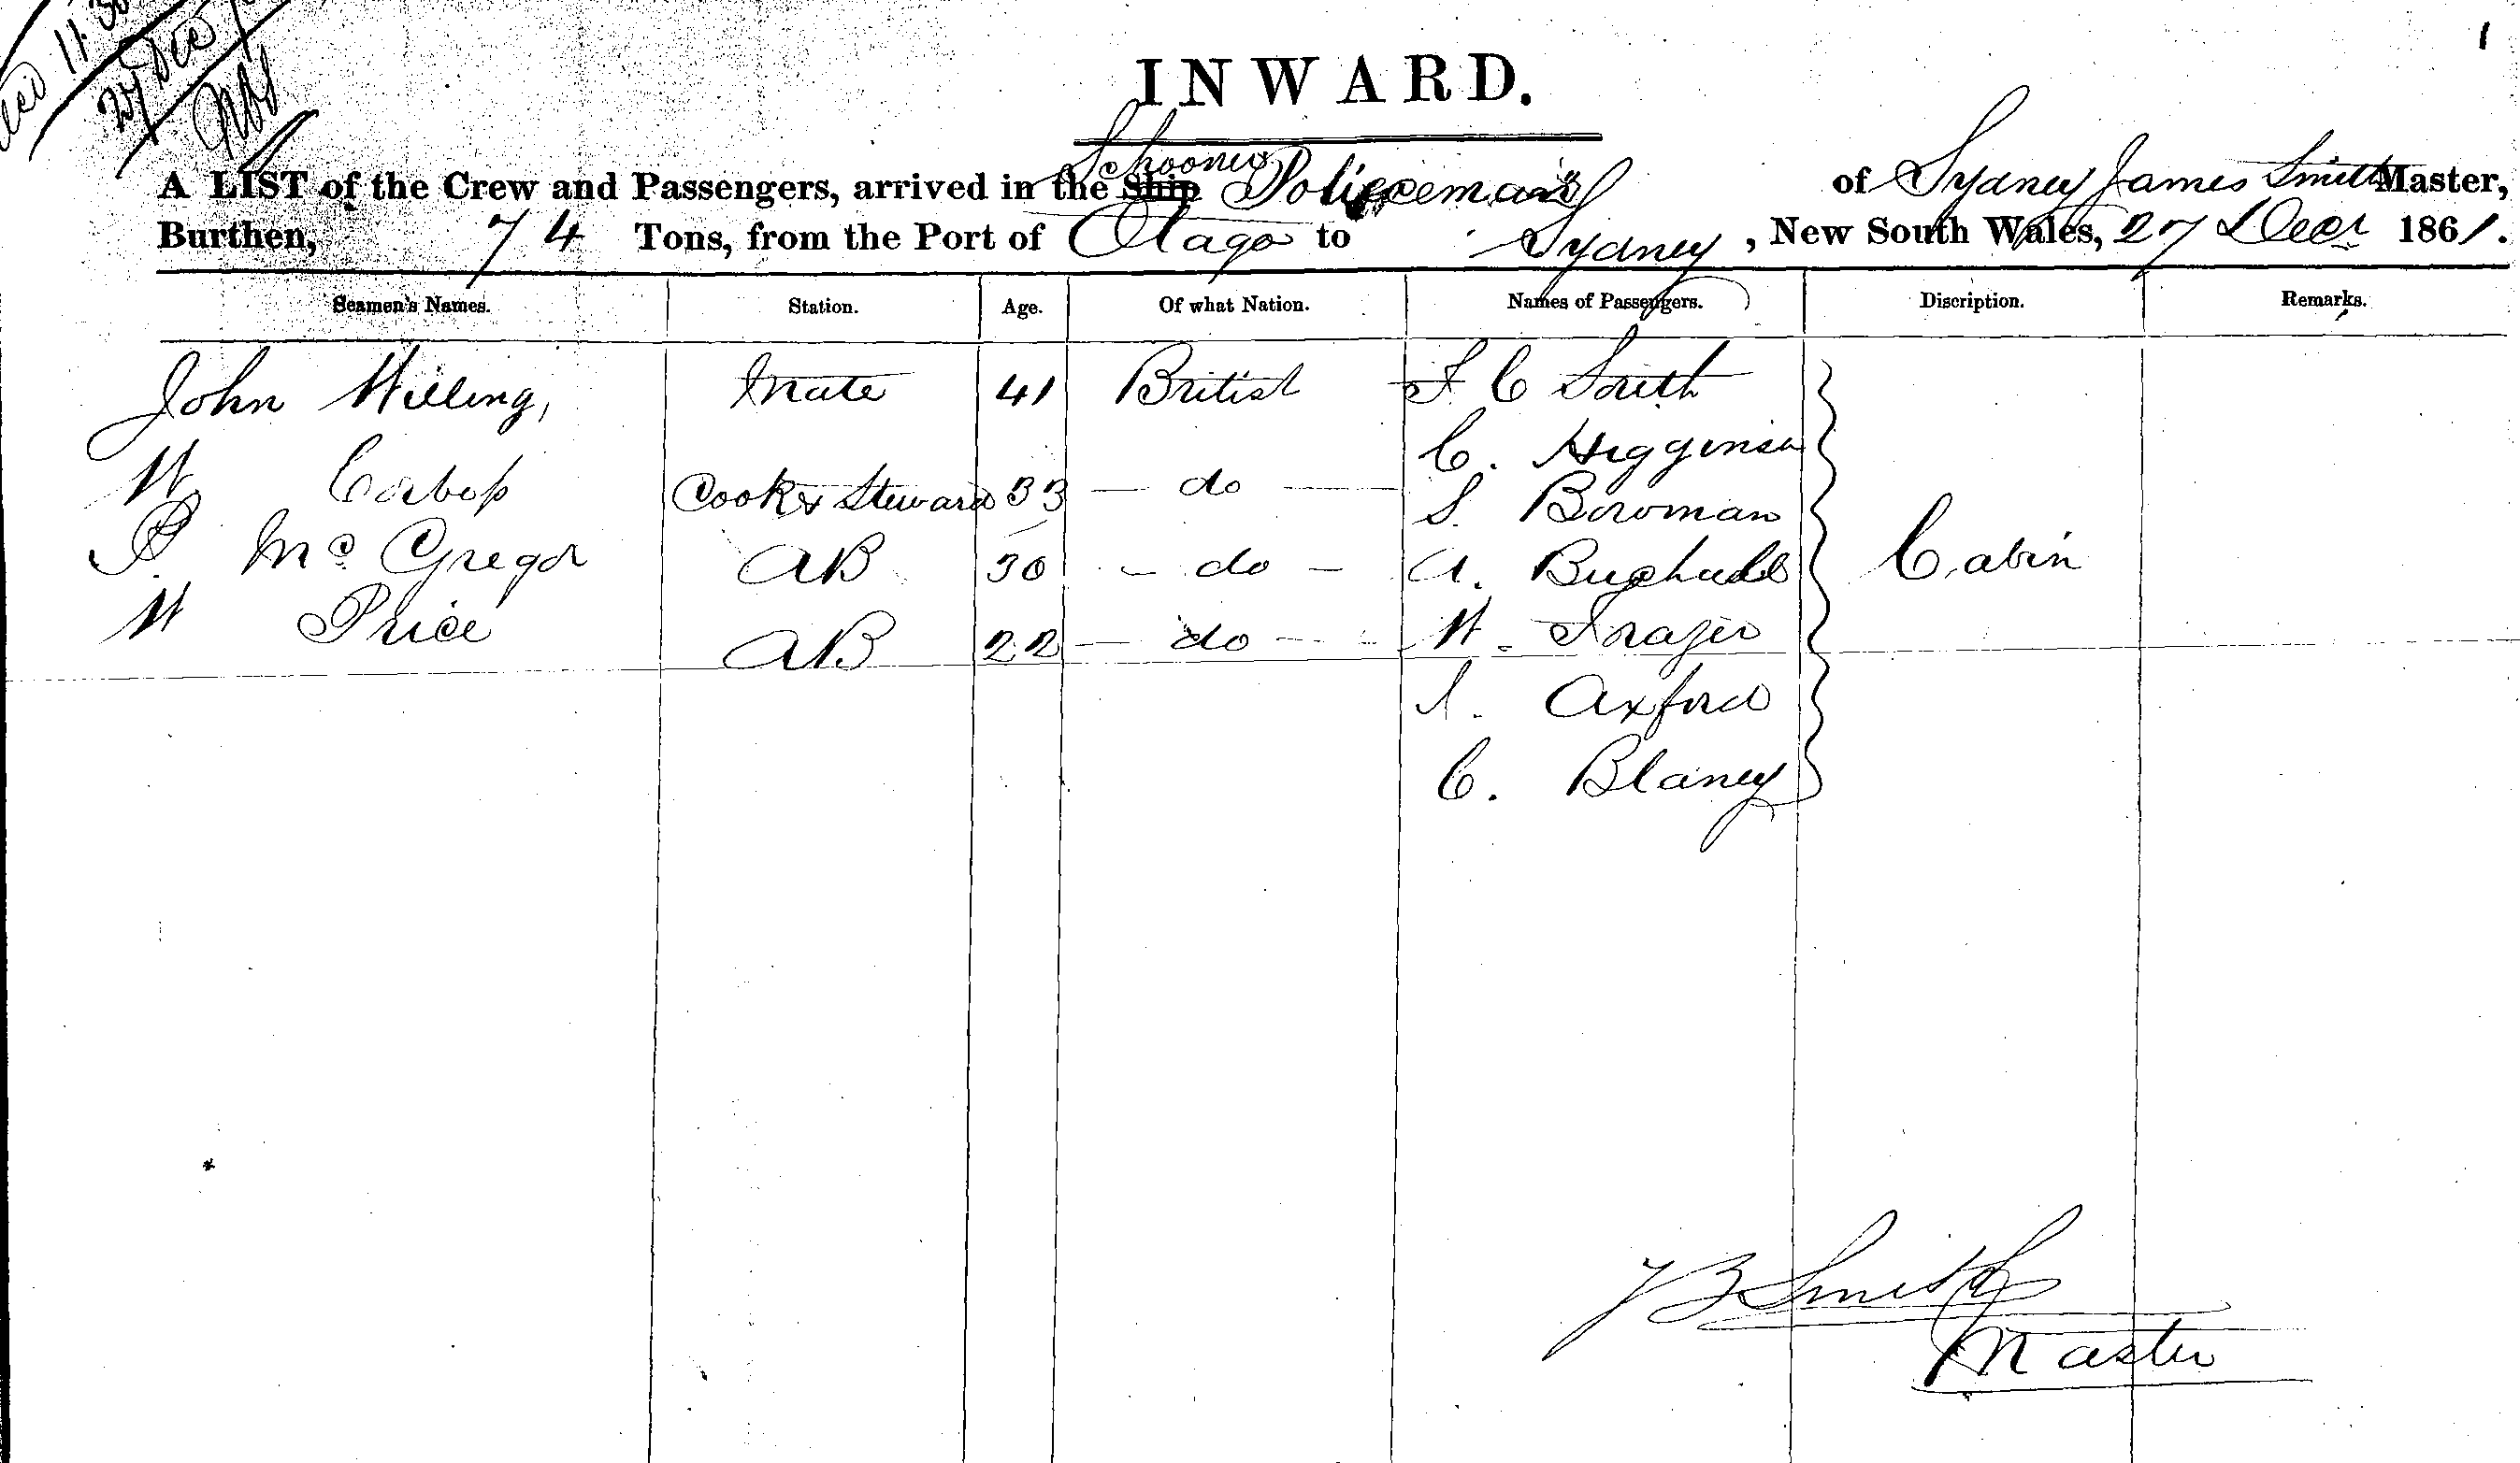 11.30
27 Dec
1
INWARD.
Schooner
A LIST of the Crew and Passengers, arrived in the Ship Policeman of Sydney James Smith Master,
Burthen, 74 Tons, from the Port of Otago to Sydney, New South Wales, 27 Decr 1861.
Seamen's Names. Station. Age. Of what Nation. Names of Passengers. Discription. Remarks.
John Mate 41 British F C South
W Cook & Steward 33 — do — C. Higginson
S. Bowman
P. Mc Gregor AB 30 — do — A. Cabin
W Price AB 22 — do — W. Frazer
Axford
C. Blaney
Smith
Master